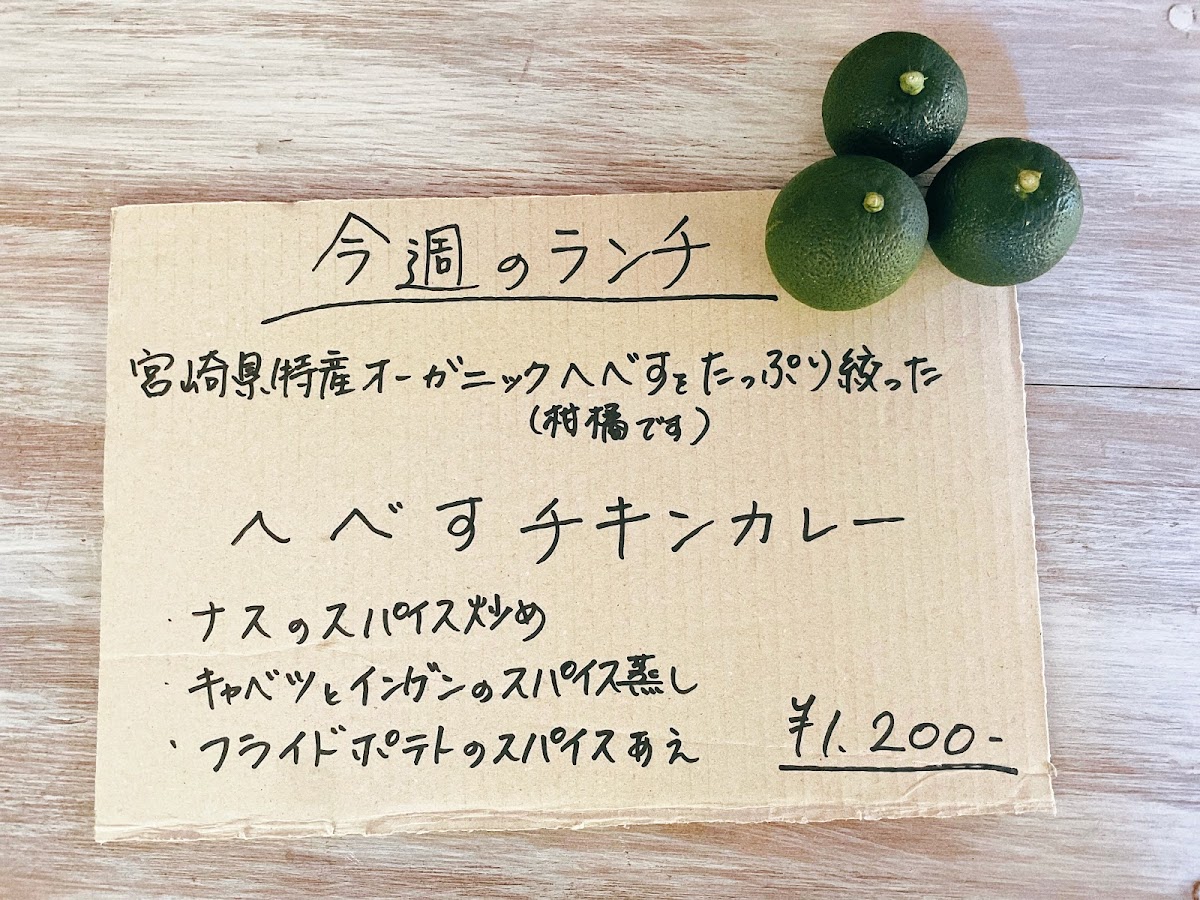 今週のランチ
宮崎県特産オーガニックへべすをたっぷり絞った
(柑橘です)
へべすチキンカレー
・ナスのスパイス炒め
・キャベツとインゲンのスパイス蒸し
・フライドポテトのスパイスあえ
¥1.200-